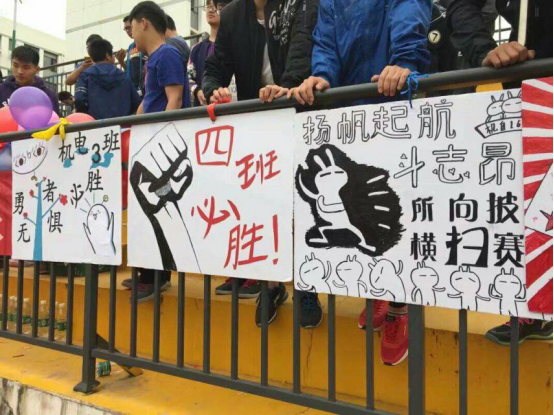 机电3班
勇者 必胜
无惧
四班
必胜!
扬帆起航
斗志昂
所向披
横扫赛